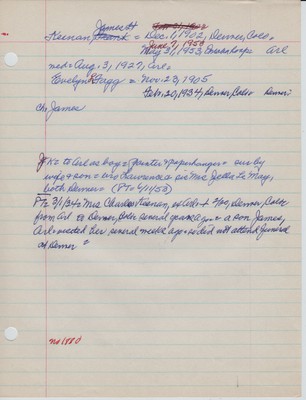 James H
Keenan, Frank = Dec. 1, 1902, Denver, Colo.
June 9, 1950
May 31, 1953 Evansburgh Arl
md = Aug. 3, 1927, Arl.
Evelyn Gagg = Nov. 23, 1905
Feb. 20, 1934, Denver, Colo = Denver
ch James
JK = to Arl as boy = painter & paperhanger = sur by
wife & son = bro Lawrence & sis Mrs Jella Le May,
both Denver = (PT 6/1/53)
PT 3/1/34 = Mrs Charles Keenan, of Arl d 2/20, Denver, Colo
from Arl to Denver, Colo several years ago = a son James,
Arl = visited her several weeks ago = so did not attend funeral
at Denver =
no 1880